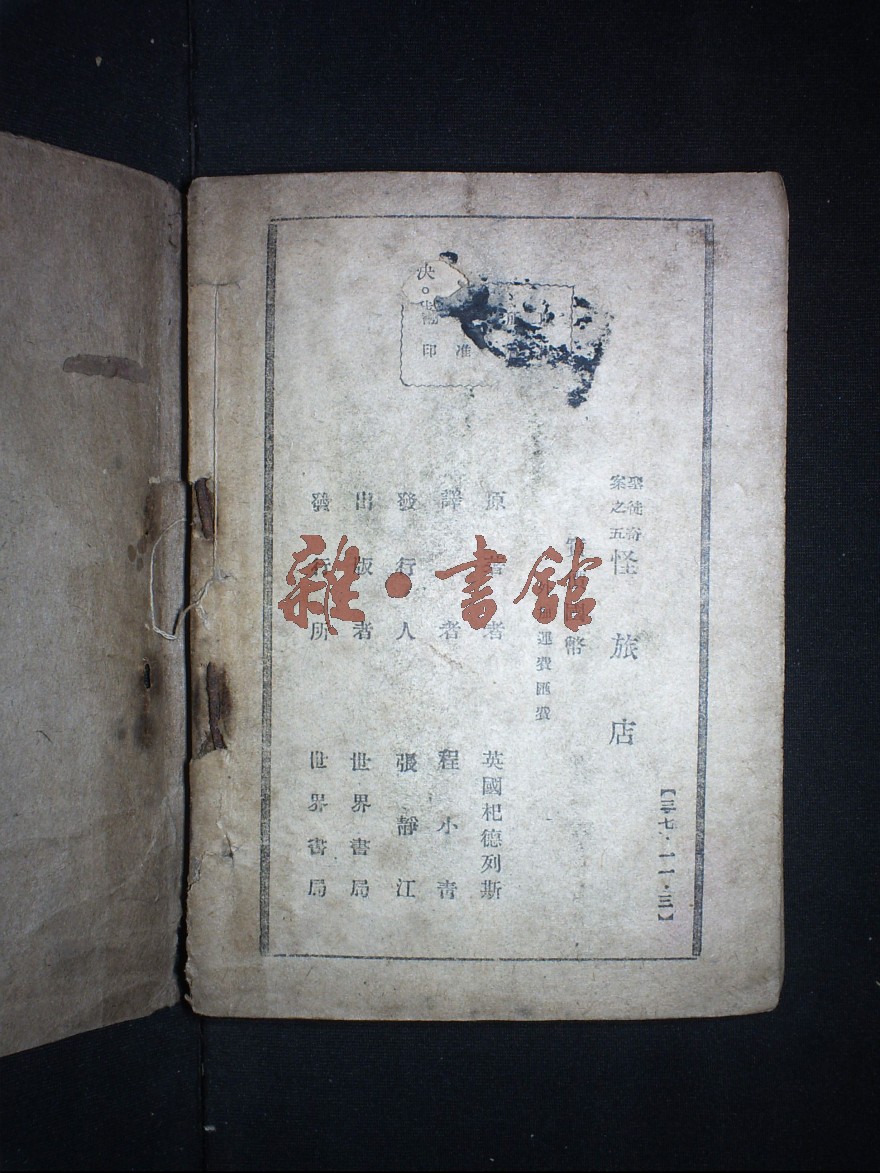 【三七·一一·三】
聖徒奇案之五 怪旅店
幣
運費匯費
原著者 英國杞德列斯
譯者 程小青
發行人 張靜江
出版者 世界書局
發行所 世界書局
准
印
決
雜·書館